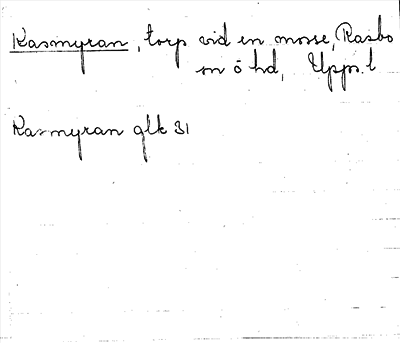 Kasmyran, torp vid en mosse, Rasbo
sn ö hd, Upps. l
Kasmyran glk 31